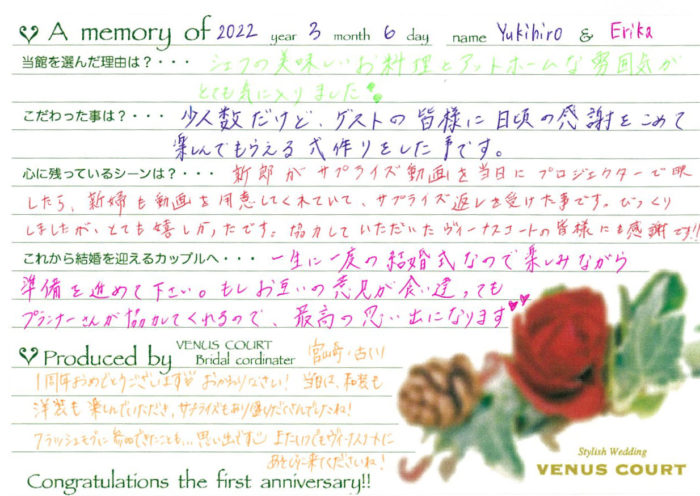 A memory of 2022 year 3 month 6 day name Yukihiro & Erika
当館を選んだ理由は？・・・ シェフの美味しいお料理とアットホームな雰囲気が
とても気に入りました
こだわった事は？・・・ 少人数だけど、ゲストの皆様に日頃の感謝をこめて
楽しんでもらえる式作りをした事です。
心に残っているシーンは？・・・ 新郎がサプライズ動画を当日にプロジェクターで映
したら、新婦も動画を用意してくれていて、サプライズ返しを受けた事です。びっくり
しましたが、とても嬉しかったです。協力していただいたヴィーナスコートの皆様にも感謝です!!
これから結婚を迎えるカップルへ・・・ 一生に一度の結婚式なので楽しみながら
準備を進めて下さい。もしお互いの意見が食い違っても
プランナーさんが協力してくれるので、最高の思い出になります
Produced by VENUS COURT
Bridal cordinater 宮崎・古川
1周年おめでとうございます おかえりなさい! 当日は、和装も
洋装も楽しんでいただき、サプライズもあり盛りだくさんでしたね!
フラッシュモブに参加できたことも...思い出です またいつでもヴィーナスコートに
あそびに来てくださいね!
Congratulations the first anniversary!!
Stylish Wedding
VENUS COURT